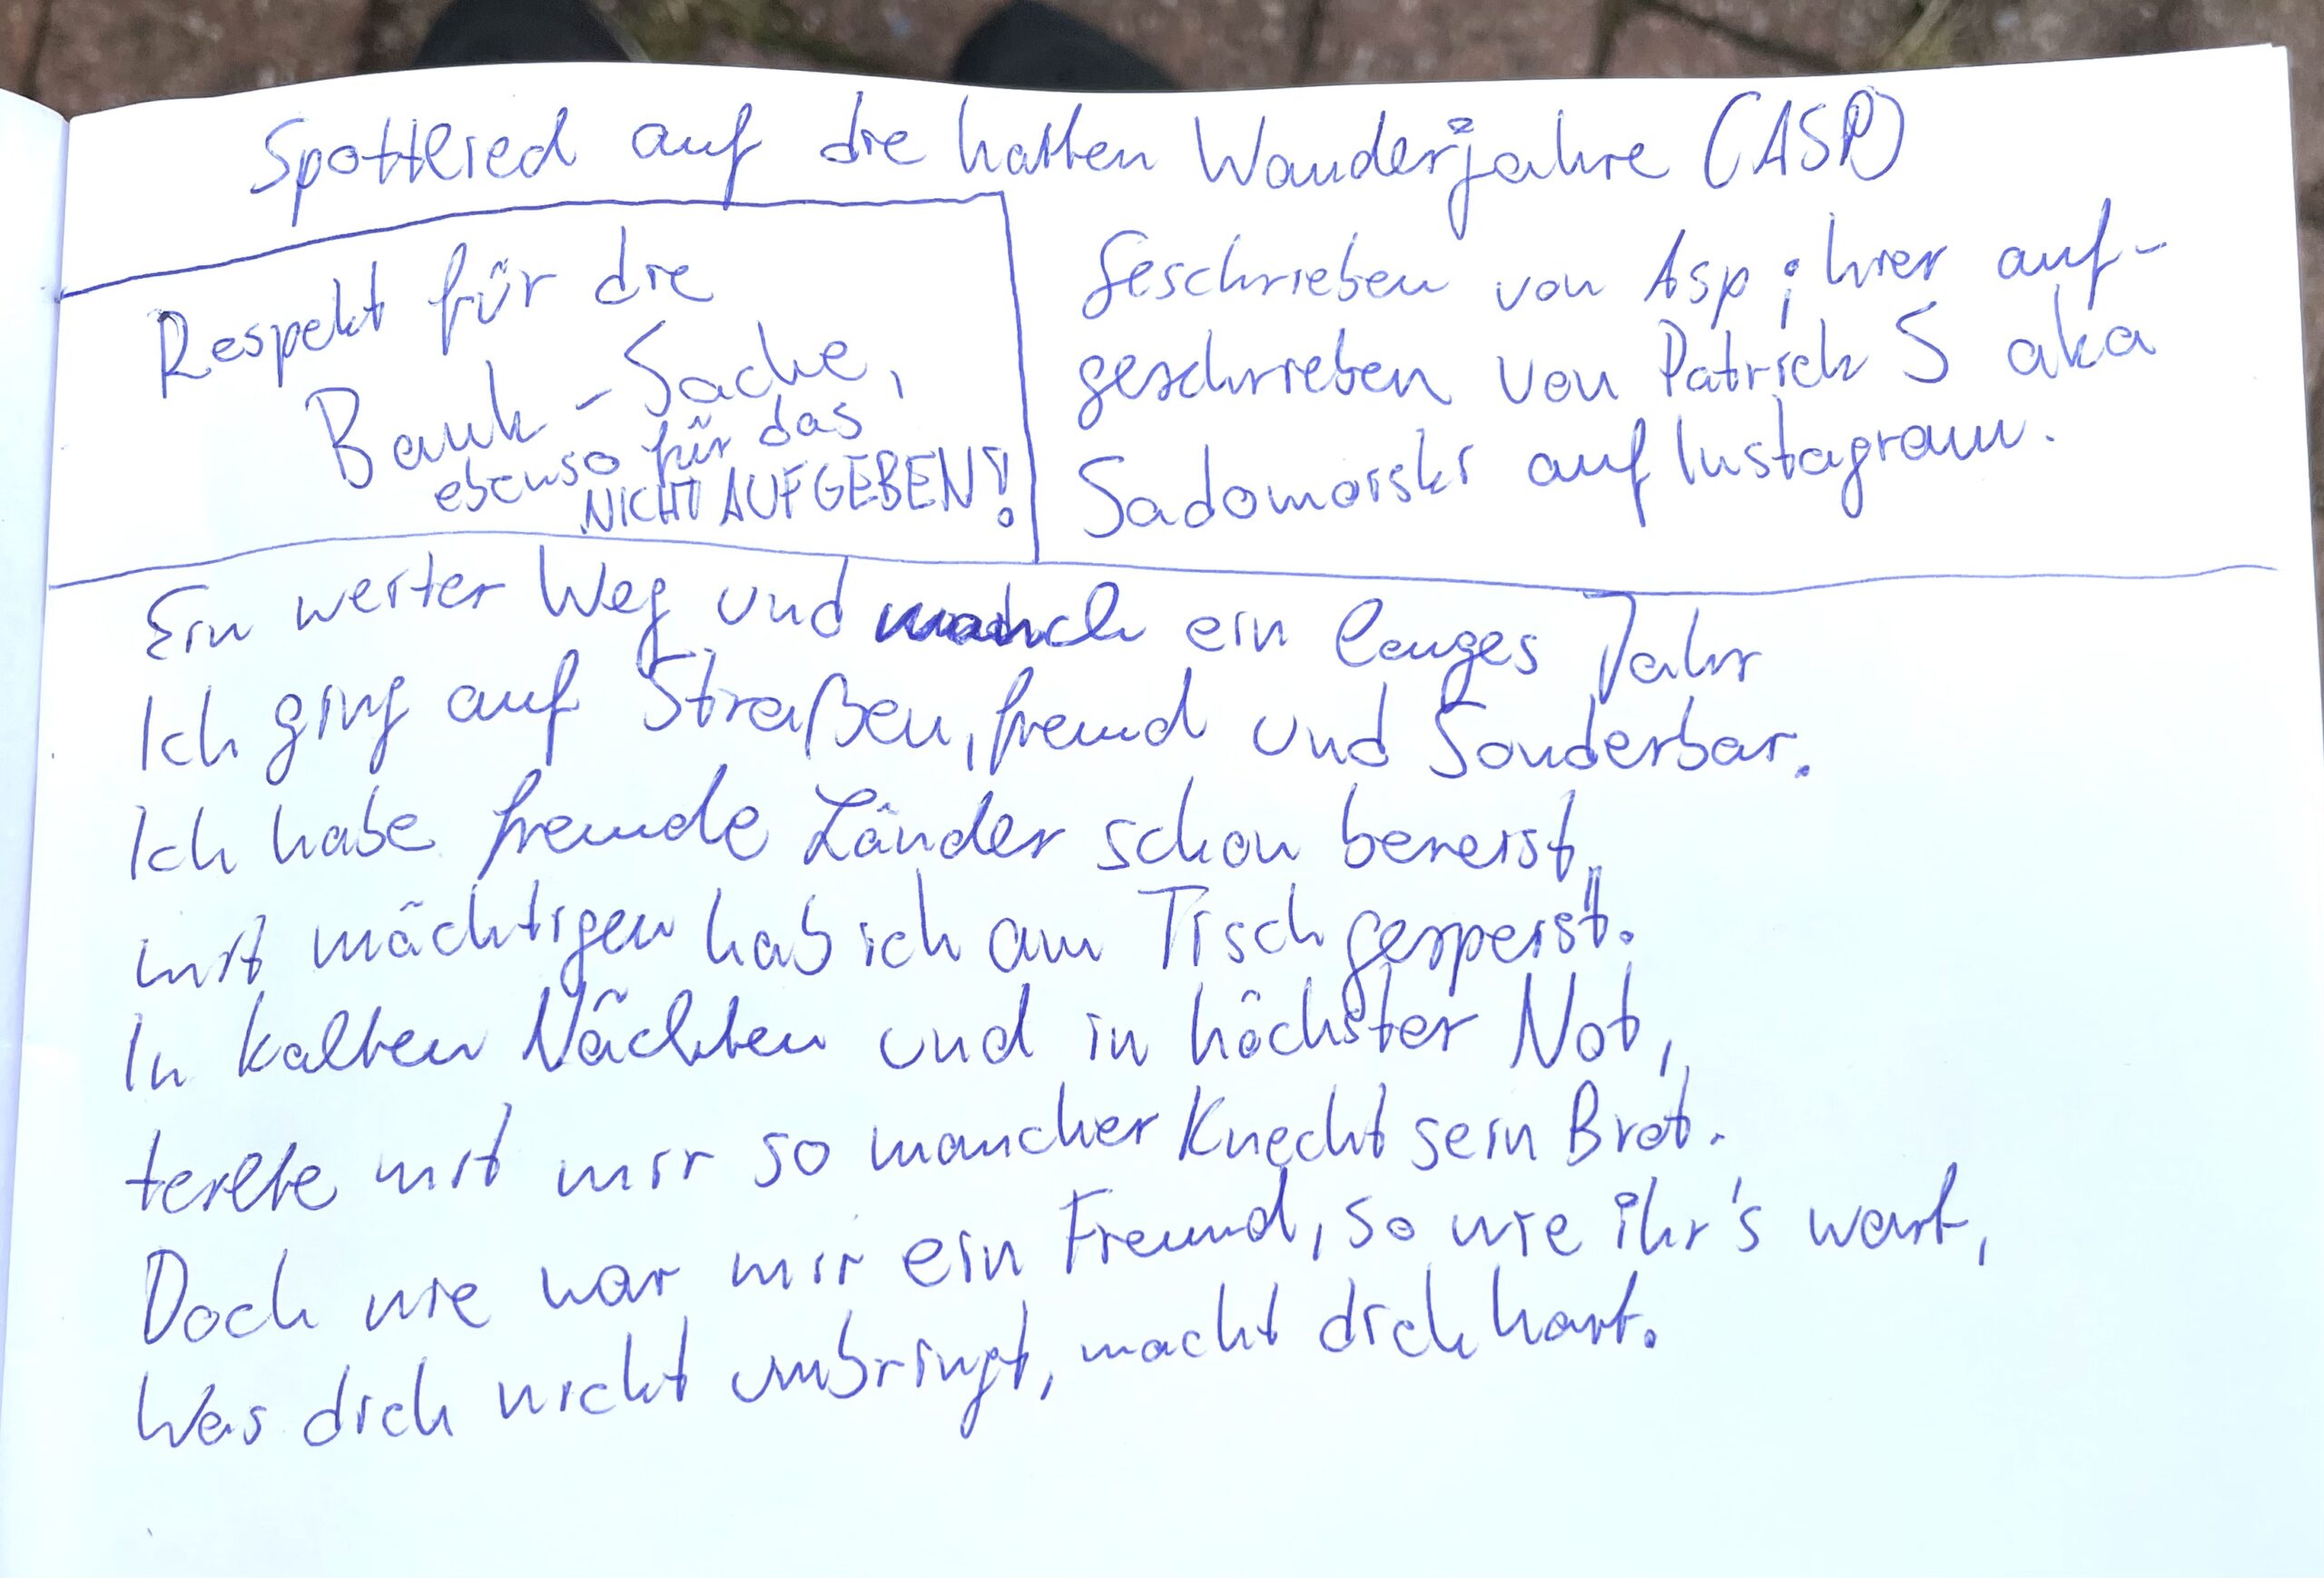 Spottlied auf die harten Wanderjahre (ASP)
Respekt für die
Bank-Sache,
ebenso für das
NICHT AUFGEBEN!
Geschrieben von Asp; hier auf-
geschrieben von Patrick S aka
Sadomorski auf Instagram.
Ein weiter Weg und manch ein langes Jahr
Ich ging auf Straßen, fremd und Sonderbar.
Ich habe fremde Länder schon bereist,
mit mächtigen hab ich am Tisch gespeist.
In kalten Nächten und in höchster Not,
teilte mit mir so mancher Knecht sein Brot.
Doch nie war mir ein Freund, so wie ihr's wart,
Was dich nicht umbringt, macht dich hart.